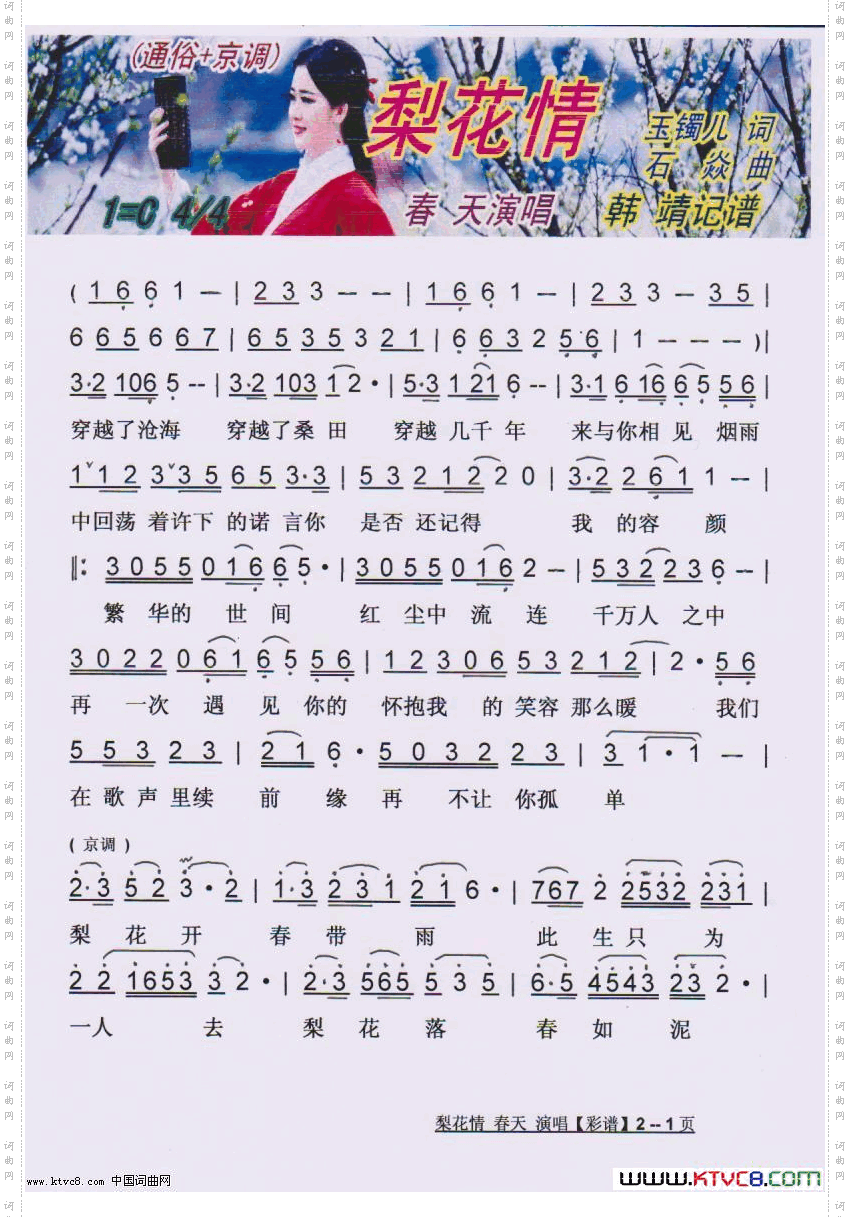 (通俗+京调)
梨花情
玉镯儿 词
石 焱 曲
1=C 4/4
春 天演唱 韩 靖记谱
( 1 6 6 1 — | 2 3 3 — — | 1 6 6 1 — | 2 3 3 — 3 5 |
6 6 5 6 6 7 | 6 5 3 5 3 2 1 | 6 6 3 2 5 6 | 1 — — — ) |
3·2 1 0 6 5 -- | 3·2 1 0 3 1 2 · | 5·3 1 2 1 6 -- | 3·1 6 1 6 6 5 5 6 |
穿越了沧海 穿越了桑 田 穿越 几千 年 来与你相 见 烟雨
1 ˅ 1 2 3 ˅ 3 5 6 5 3·3 | 5 3 2 1 2 2 0 | 3·2 2 6 1 1 — |
中回荡 着许下 的诺 言你 是否 还记得 我 的容 颜
‖: 3 0 5 5 0 1 6 6 5 · | 3 0 5 5 0 1 6 2 — | 5 3 2 2 2 3 6 — |
繁 华的 世 间 红 尘中 流 连 千万人 之中
3 0 2 2 0 6 1 6 5 5 6 | 1 2 3 0 6 5 3 2 1 2 | 2 · 5 6
再 一次 遇 见 你的 怀抱我 的 笑容 那么暖 我们
5 5 3 2 3 | 2 1 6 · 5 0 3 2 2 3 | 3 1 · 1 — |
在 歌 声 里续 前 缘 再 不让 你孤 单
( 京调 )
2·3 5 2 3 · 2 | 1·3 2 3 1 2 1 6 · | 7 6 7 2 2 5 3 2 2 3 1 |
梨 花 开 春 带 雨 此 生 只 为
2 2 1 6 5 3 3 2 · | 2·3 5 6 5 5 3 5 | 6·5 4 5 4 3 2 3 2 · |
一人 去 梨 花 落 春 如 泥
梨花情 春天 演唱【彩谱】2 -- 1 页
www.ktvc8.com 中国词曲网
www.KTVC8.com
词曲网